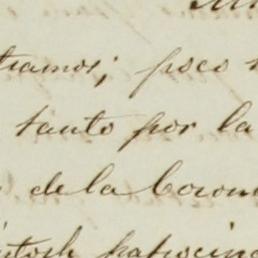 tramos; poco
tanto por la
de la Coron
tosh patrocin